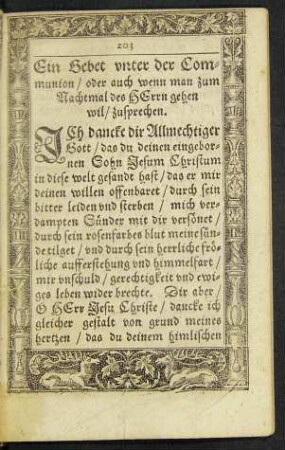 203
Ein Gebet vnter der Com-
munion / oder auch wenn man zum
Nachtmal des HErrn gehen
wil / zusprechen.
ICh dancke dir Allmechtiger
Gott / das du deinen eingebor-
nen Sohn Jesum Christum
in diese welt gesandt hast / das er mir
deinen willen offenbaret / durch sein
bitter leiden vnd sterben / mich ver-
dampten Sünder mit dir versönet /
durch sein rosenfarbes blut meine sün-
de tilget / vnd durch sein herrliche frö-
liche aufferstehung vnd himmelfart /
mir vnschuld / gerechtigkeit vnd ewi-
ges leben wider brechte. Dir aber /
O HErr Jesu Christe / dancke ich
gleicher gestalt von grund meines
hertzen / das du deinem himlischen